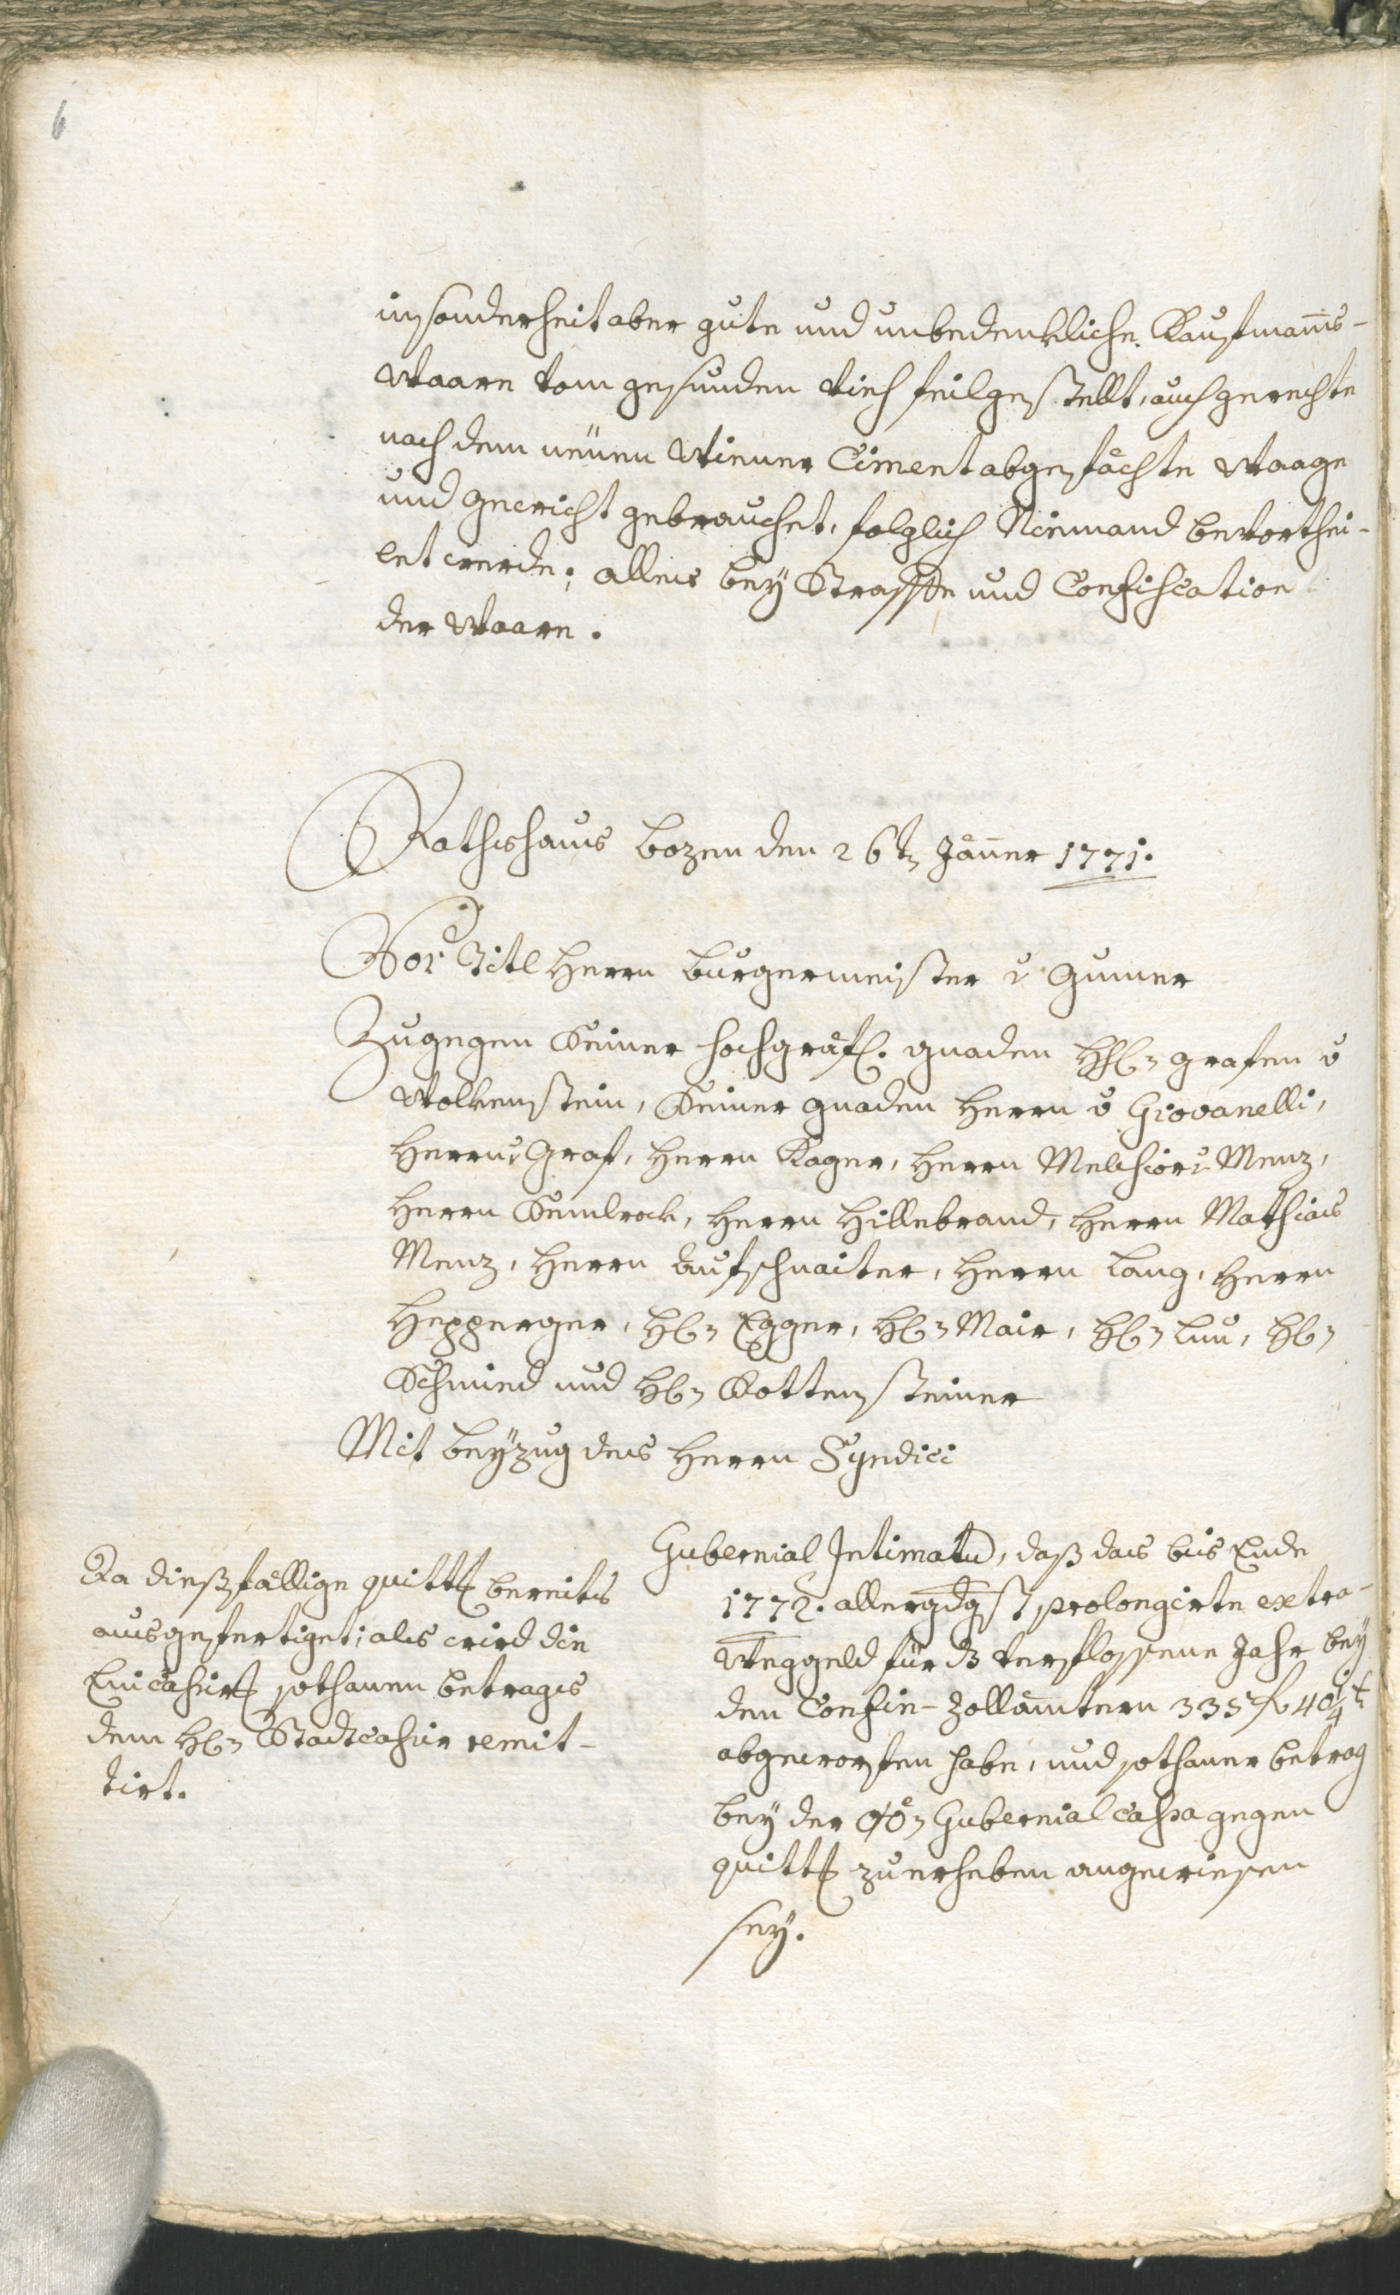 6
insonderheit aber gute und unbedenkliche Kaufmanns-
Waare vom gesunden Vieh feilgestellt, auch gerechte
nach dem neuen Wienner Ciment abgefächte Waage
und Gewicht gebrauchet, folglich Niemand bevorthei-
let werde; alles bey Straffe und Confiscation
der Waare.
Rathshaus Bozen den 26t Jänner 1771.
Vor Titl Herrn Burgermeister v Gumer
Zugegen Seiner hochgräfl. Gnaden HH Grafen v
Wolkenstein, Seiner Gnaden Herrn v Giovanelli,
Herrn v Graf, Herrn Kager, Herrn Melchior v Menz,
Herrn Semlrock, Herrn Hillebrand, Herrn Mathias
Menz, Herrn Aufschnaiter, Herrn Lang, Herrn
Hepperger, H Egger, H Mair, H Luu, H
Schmied und H Kottensteiner
Mit Beyzug des Herrn Syndici
Da dießfällige Quittg bereits
ausgefertiget; als wird die
Eincahsirg sothannen Betrages
dem H Stadtcahsir remit-
tirt.
Gubernial Intimatu, daß das bis Ende
1772. allergdgst prolongirte extra-
Weggeld für dz verflossene Jahr bey
den Confin-Zollämtern 335 f 40 1/4 t
abgeworfen habe, und sothaner Betrag
bey der Gubernial Cahsa gegen
Quittg zu erheben angewiesen
sey.